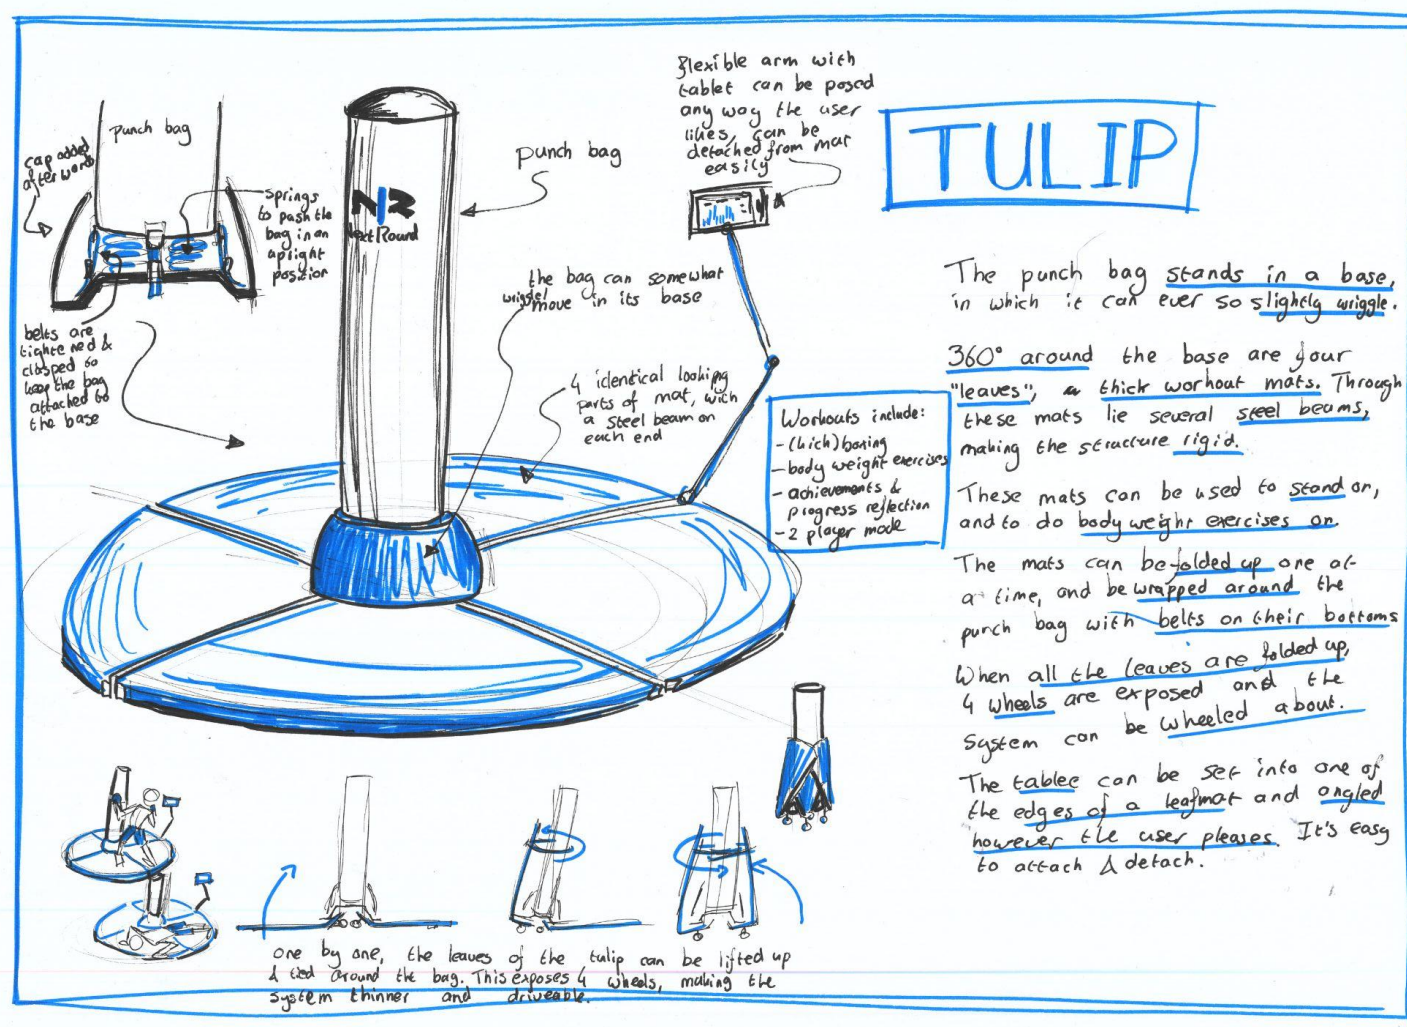 TULIP
punch bag
cap added
afterwords
springs
to push the
bag in an
upright
position
belts are
tightened &
clasped to
keep the bag
attached to
the base
punch bag
NR
Next Round
the bag can somewhat
wriggle/move in its base
4 identical looking
parts of mat, with
a steel beam on
each end
flexible arm with
tablet can be posed
any way the user
likes, can be
detached from mat
easily
Workouts include:
- (kick)boxing
- body weight exercises
- achievements &
progress reflection
- 2 player mode
The punch bag stands in a base,
in which it can ever so slightly wriggle.
360° around the base are four
"leaves", thick workout mats. Through
these mats lie several steel beams,
making the structure rigid.
These mats can be used to stand on,
and to do body weight exercises on.
The mats can be folded up one at
a time, and be wrapped around the
punch bag with belts on their bottoms
When all the leaves are folded up,
4 wheels are exposed and the
system can be wheeled about.
The tablet can be set into one of
the edges of a leafmat and angled
however the user pleases. It's easy
to attach & detach.
one by one, the leaves of the tulip can be lifted up
& tied around the bag. This exposes 4 wheels, making the
system thinner and driveable.